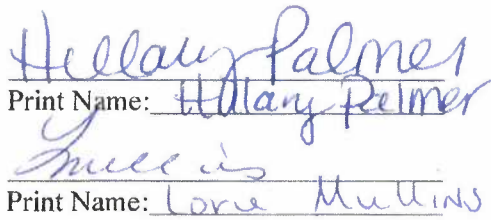 Hillary Palmer
Print Name: Hillary Palmer
LMullins
Print Name: Lorie Mullins